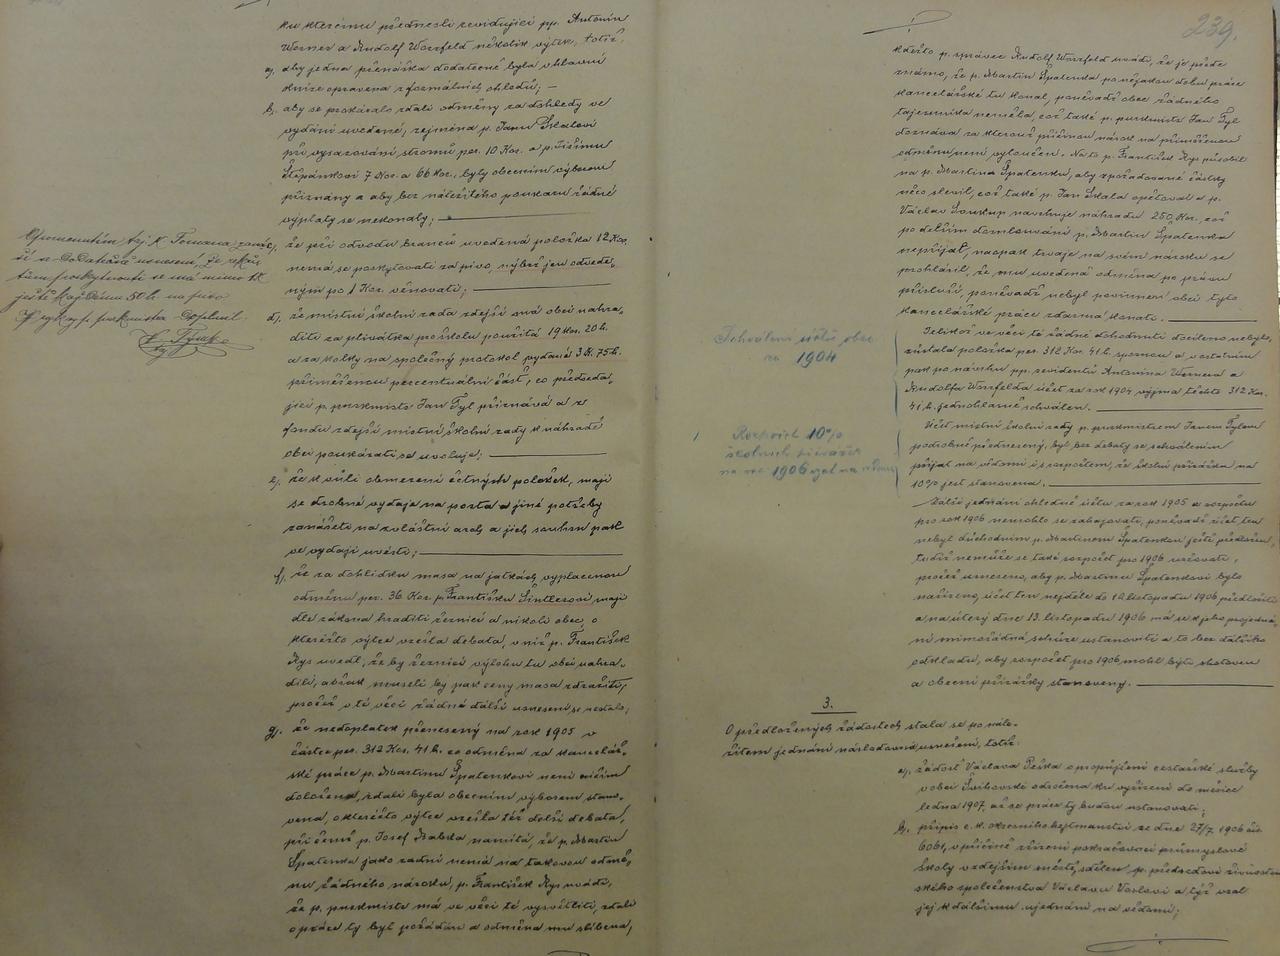 ku kterému přednesli revidující pp. Antonín
Werner a Rudolf Worsfeld několik výtek, totiž:
a, aby jedna přenáška dodatečně byla v hlavní
knize opravena z formálních ohledů; —
b, aby se prokázalo zdali odměny za dohledy ve
vydání uvedené, zejména p. Janu Skalovi
při vysazování stromů per. 10 Kor. a p. Jiřímu
Štěpánkovi 7 Kor. a 66 Kor., byly obecním výborem
přiznány a aby bez náležitého poukazu žádné
výplaty se nekonaly;
c, že při odvodu branců uvedená položka 12 Kor.
nemá se poskytovati za pivo, nýbrž jen odvede-
ným po 1 Kor. věnovati;
d, že místní školní rada zdejší má obci nahra-
diti za plivátka pro školu použitá 19 Kor. 20 h.
a za kolky na společný protokol vydané 3 K. 75 h.
přiměřenou percentuální část, co předseda-
jící p. purkmistr Jan Tyl přiznává a z
fondu zdejší místní školní rady k náhradě
obci poukázati se uvoluje;
e, že k vůli obmezení účtných položek, mají
se drobné vydaje na porta a jiné potřeby
zanášeti na zvláštní arch a jich souhrn pak
ve vydají uvésti;
f, že za dohlídku masa na jatkách vyplacenou
odměnu per. 36 Kor. p. Františku Šintlerovi mají
dle zákona hraditi řezníci a nikoli obec, o
kteréžto výtce vzešla debata, v níž p. František
Rys uvedl, že by řezníci výlohu tu obci nahra-
dili, avšak museli by pak ceny masa zdražiti,
pročež v té věci žádná další usnesení se nestalo;
g, že nedoplatek přenesený na rok 1905 v
částce per. 312 Kor. 41 h. co odměna za kancelář-
ské práce p. Martinu Špatenkovi není ničím
doložena, zdali byla obecním výborem stano-
vena, o kteréžto výtce vzešla též delší debata,
při čemž p. Josef Babka namítá, že p. Martin
Špatenka jako radní nemá na takovou odmě-
nu žádného nároku, p. František Rys uvádí,
že p. purkmistr má ve věci té vysvětliti, zdali
o práce ty byl požádán a odměna mu slíbena,
Opomenutím taj. K. Tomana zane-
še
V. Tyl purkmistr
239.
kdežto p. správce Rudolf Worsfeld uvádí, že je přede
známo, že p. Martin Špatenka po nějakou dobu práce
kancelářské tu konal, poněvadž obec žádného
tajemníka neměla, což také p. purkmistr Jan Tyl
doznává za kterouž příčinou nárok na přiměřenou
odměnu není vyloučen. Na to p. František Rys působil
na p. Martina Špatenku, aby z požadované částky
něco slevil, což také p. Jan Skala opětoval a p.
Václav Soukup navrhuje náhradu 250 Kor. což
po delším domlouvání p. Martin Špatenka
nepřijal, naopak trvaje na svém nároku se
prohlásil, že mu uvedená odměna po právu
přísluší, poněvadž nebyl povinnen obci tyto
kancelářské práce zdarma konati.
Jelikož ve věci té žádné dohodnutí docíleno nebylo,
zůstala položka per. 312 Kor. 41 h. spornou a v ostatním
pak po návrhu pp. revidentů Antonína Wernera a
Rudolfa Worsfelda účet za rok 1904 vyjma těchto 312 Kor.
41 h. jednohlasně schválen.
Schválení účtů obec.
za 1904
Účet místní školní rady p. purkmistrem Janem Tylem
podrobně přednesený, byl bez debaty se schválením
přijat na vědomí i s rozpočtem, že školní přirážka na
10% jest stanovena.
Rozpočet 10%
školních přirážek
na rok 1906 vzat na vědomí
Další jednání ohledně účtu za rok 1905 a rozpočtu
pro rok 1906 nemohlo se zahajovati, poněvadž účet ten
nebyl důchodním p. Martinem Špatenkou ještě předložen,
tudíž nemůže se také rozpočet pro 1906 určovati,
pročež usneseno, aby p. Martinu Špatenkovi bylo
nařízeno, účet ten nejdéle do 10 listopadu 1906 předložiti
a na úterý dne 13. listopadu 1906 má se k jeho projedná-
ní mimořádná schůze ustanoviti a to bez dalšího
odkladu, aby rozpočet pro 1906 mohl býti shotoven
a obecní přirážky stanoveny.
3.
O předložených žádostech stala se po nále-
žitém jednání následovná usnešení, totiž:
a, žádost Václava Peška o propůjčení cestářské služby
v obci Švihovské odročena ku vyřízení do měsíce
ledna 1907 až se práce ty budou ustanovati;
b, přípis c. k. okresního hejtmanství ze dne 27/7 1906 čís
6061, v příčině zřízení pokračovací průmyslové
školy v zdejším městě, sdělen p. předsedovi živnosten-
ského společenstva Václavu Voslovi a týž vzal
jej k dalšímu ujednání na vědomí;